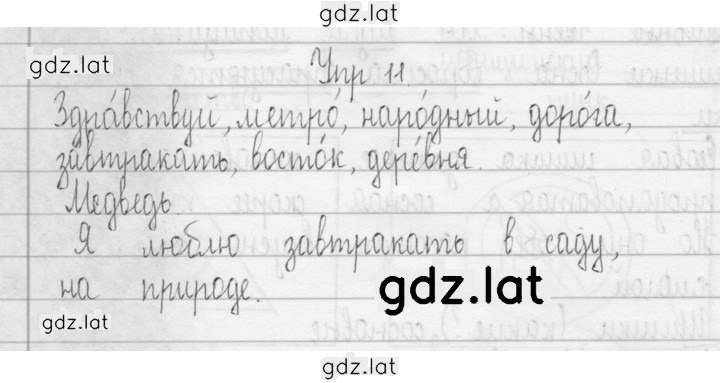 gdz.lat
gdz.lat
Упр 11.
Здра́вствуй, метро́, наро́дный, доро́га,
за́втракать, восто́к, дере́вня.
Медведь.
Я люблю завтракать в саду,
на природе.
gdz.lat
gdz.lat
gdz.lat